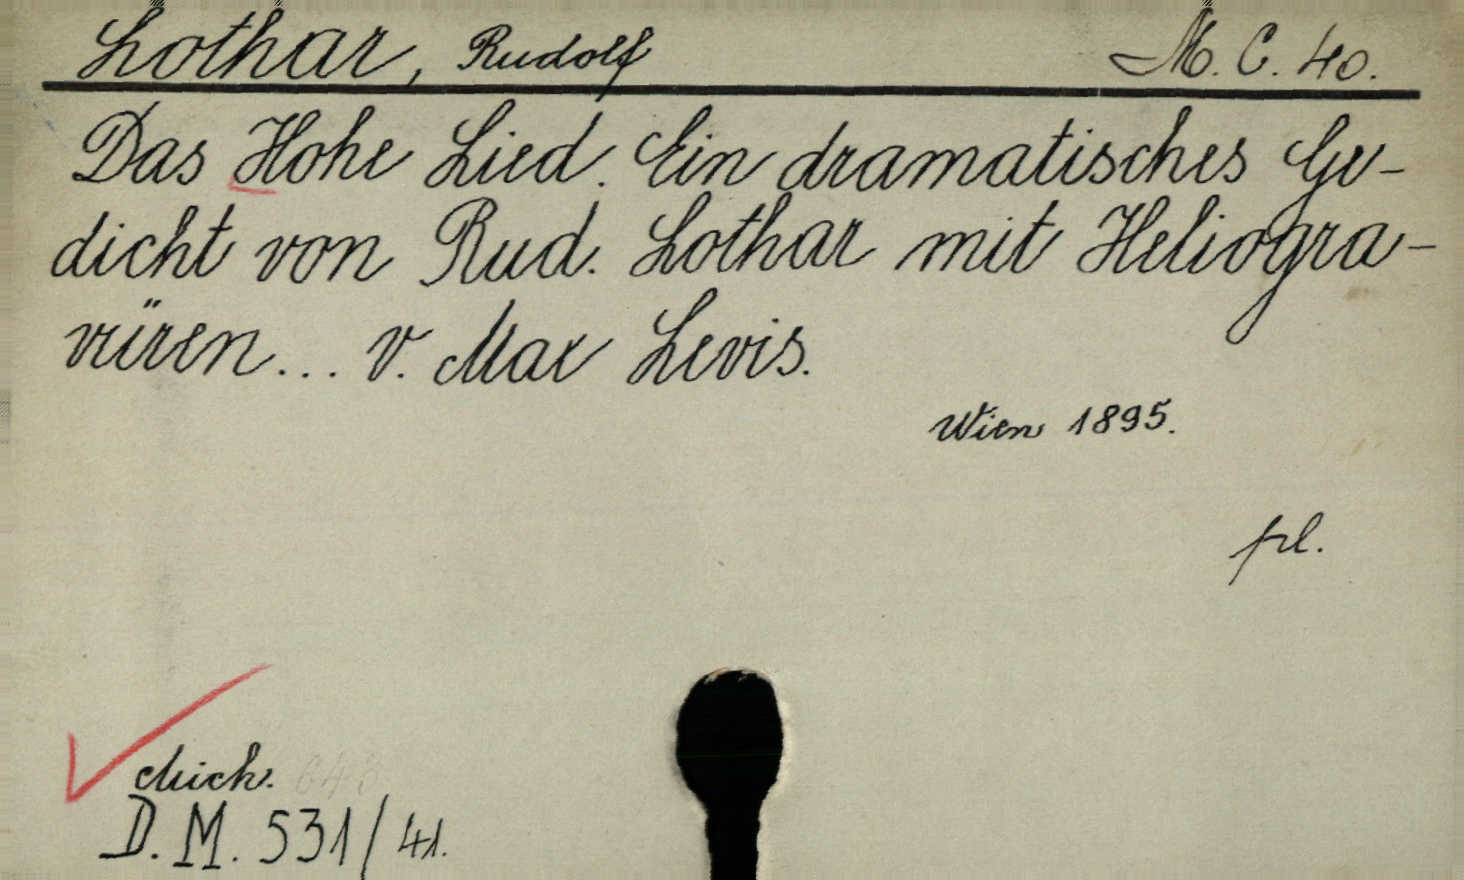 Lothar, Rudolf M. C. 40.
Das Hohe Lied. Ein dramatisches Ge-
dicht von Rud. Lothar mit Heliogra-
vüren... v. Max Levis.
Wien 1895.
pl.
Mich.
D. M. 531/41.